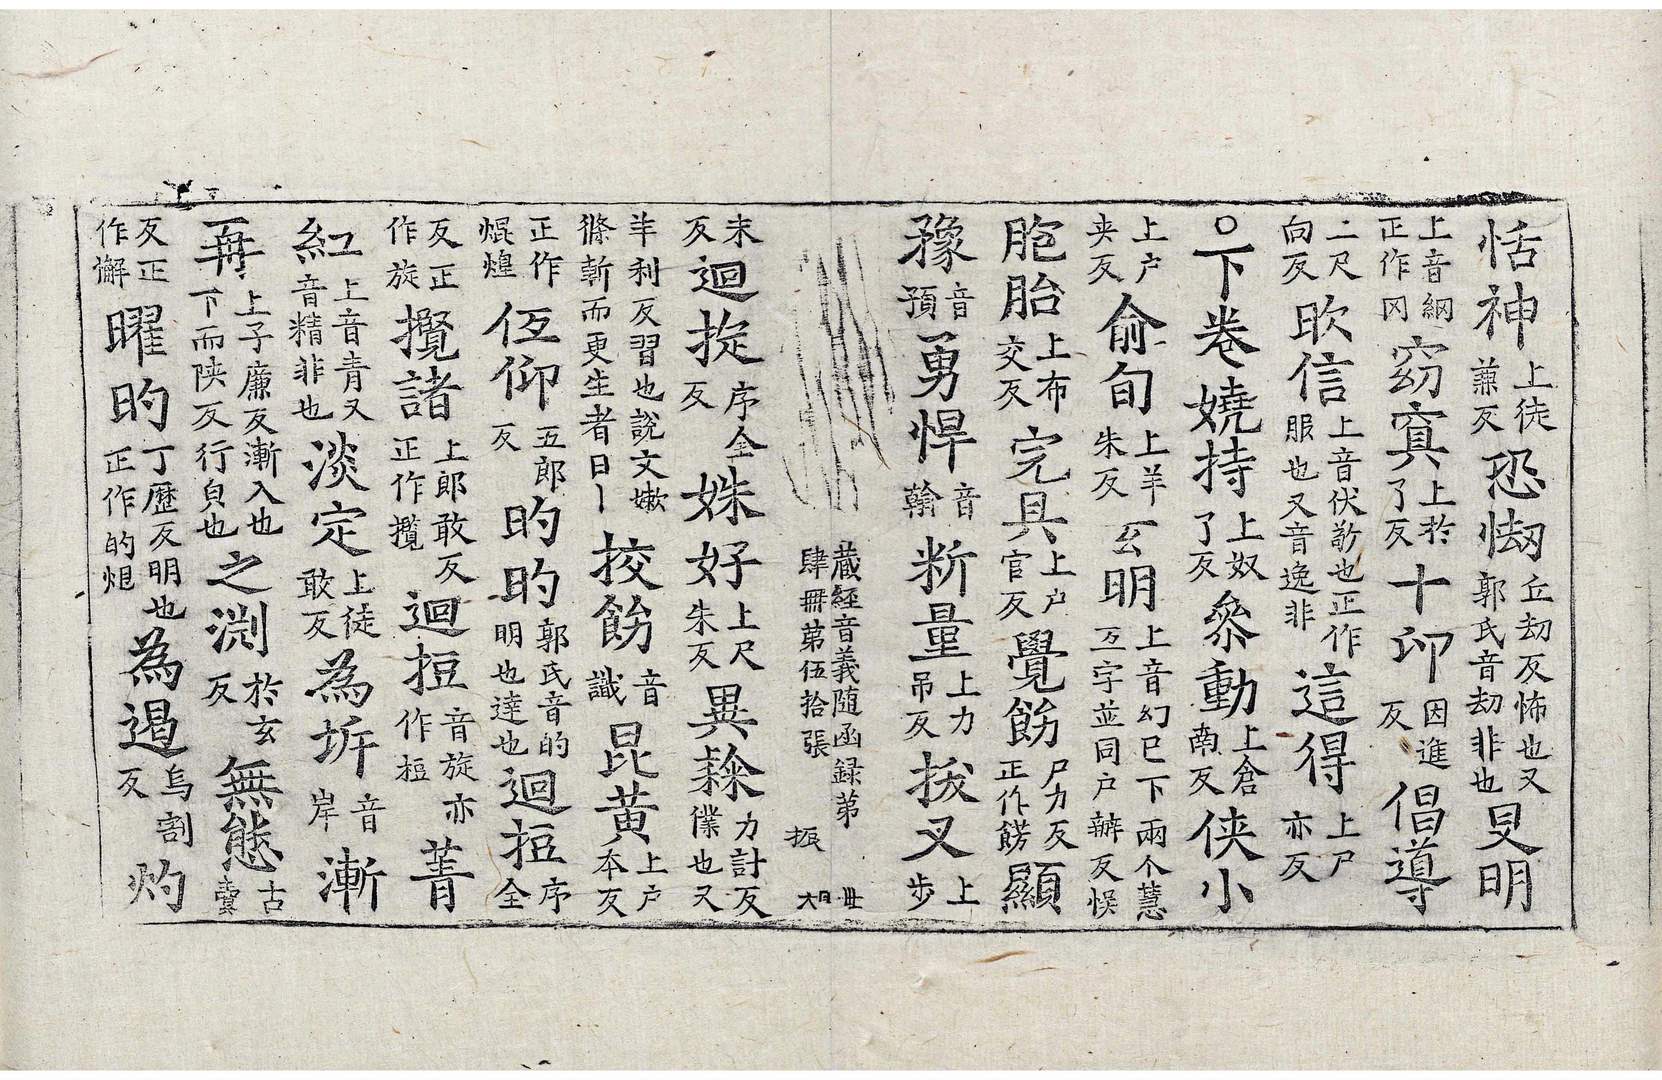 恬神上徒蒹反恐㤼丘劫反怖也又郭氏音劫非也旻明
上音綱正作冈窈窴上於了反十卬因進反倡導
二尺向反欥信上音伏敬也正作服也又音逸非這得上尸亦反
○下卷嬈持上奴了反叅動上倉南反侠小
上户夹反俞旬上羊朱反㕕明上音幻巳下兩个慧互字並同户辦反悞
胞胎上布交反完具上户官反覺餝尸力反正作餝顯
豫音預勇悍音翰断量上力吊反拔又上步
蔵經音義随函録苐肆冊苐伍拾張 振 大明冊
末反迴㨀序全反姝好上尺朱反異𦔳力計反㒒也又
羊利反習也說文嫰條斬而更生者曰丨挍餝音識昆黄上户夲反
正作焜煌仾仰五郎反旳旳郭氏音的明也達也迴㧥序全
反正作旋攬諸上郎敢反正作攬迴㧥音旋亦作桓菁
紅上音青又音精非也淡定上徒敢反為圻音岸漸
冄上子廉反漸入也下而陜反行皃也之渊於玄反無態古䕫
反正作懈曜旳丁歷反明也正作的𤈦為遏烏割反灼